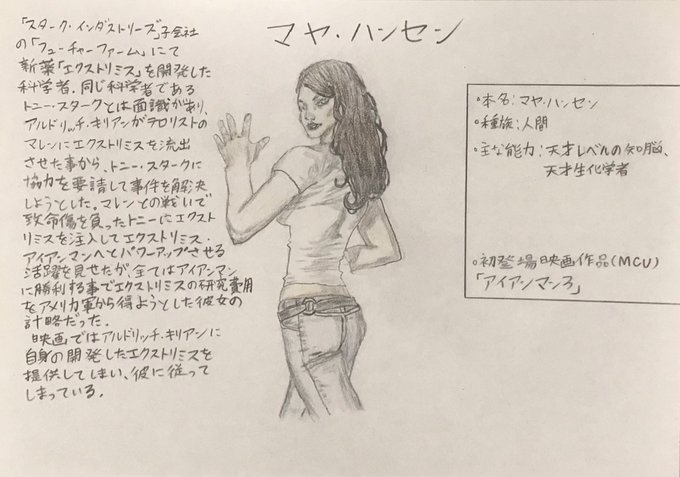 マヤ・ハンセン
「スターク・インダストリーズ」子会社
の「フューチャーファーム」にて
新薬「エクストリミス」を開発した
科学者。同じ科学者である
トニー・スタークとは面識があり、
アルドリッチ・キリアンがテロリストの
マレンにエクストリミスを流出
させた事から、トニー・スタークに
協力を要請して事件を解決
しようとした。マレンとの戦いで
致命傷を負ったトニーにエクスト
リミスを注入してエクストリミス・
アイアンマンへとパワーアップさせる
活躍を見せたが、全てはアイアンマン
に勝利する事でエクストリミスの研究費用
をアメリカ軍から得ようとした彼女の
計略だった。
映画ではアルドリッチ・キリアンに
自身の開発したエクストリミスを
提供してしまい、彼に従って
しまっている。
・本名:マヤ・ハンセン
・種族:人間
・主な能力:天才レベルの知脳、
天才生化学者
・初登場映画作品(MCU)
「アイアンマン3」